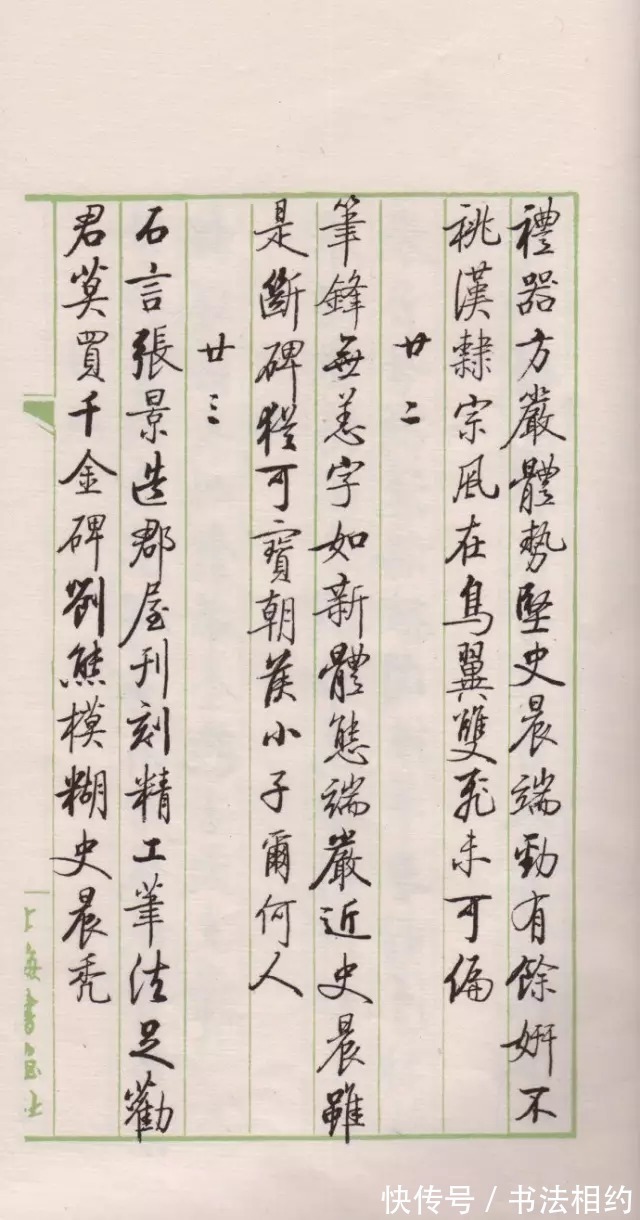 禮器方嚴體勢堅史晨端勁有餘妍不
祧漢隸宗風在鳥翼雙飛未可偏
廿二
筆鋒無恙字如新體態端嚴近史晨雖
是斷碑猶可寶朝侯小子爾何人
廿三
石言張景造郡屋刊刻精工筆法足勸
君莫買千金碑劉熊模糊史晨禿
上海書畫社
快传号／书法相约